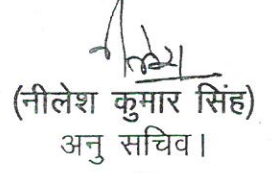 (नीलेश कुमार सिंह)
अनु सचिव।